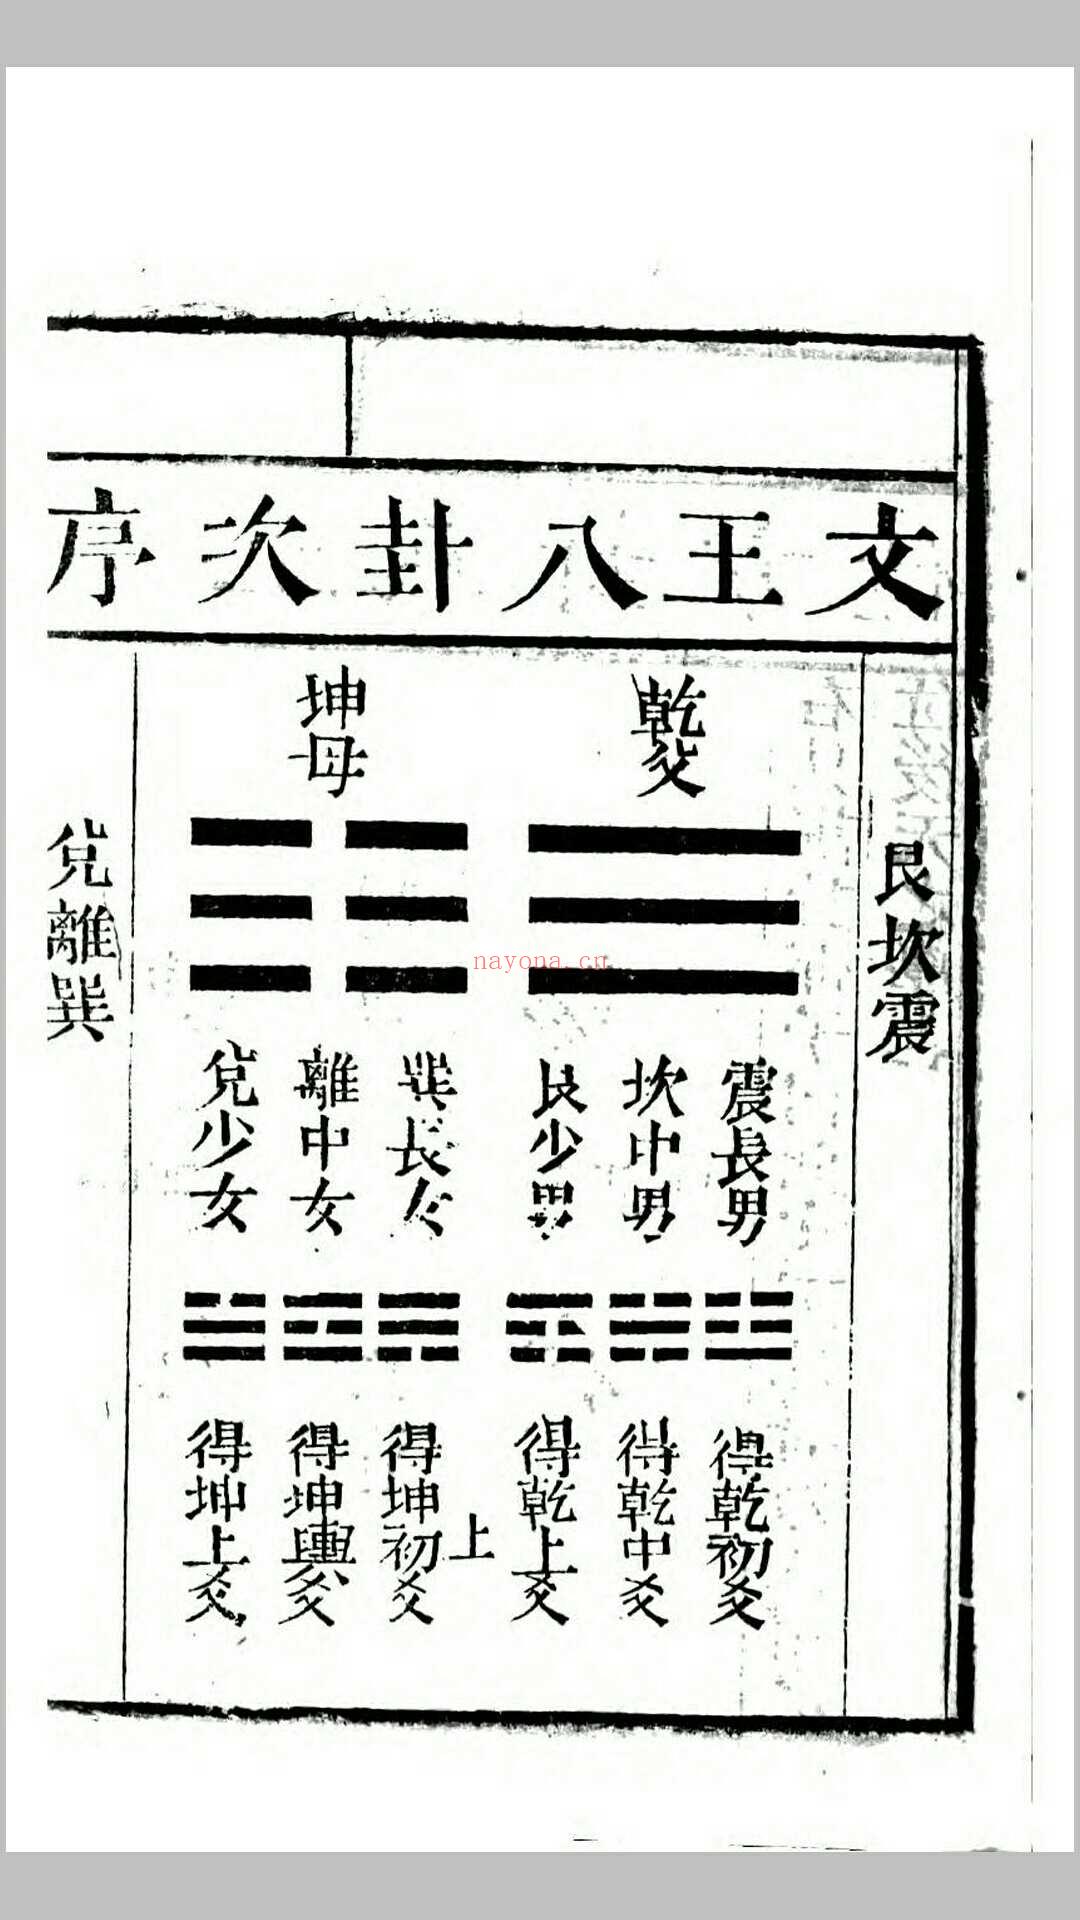 文王八卦次序
艮坎震
乾父
坤母
震長男
坎中男
艮少男
巽長女
離中女
兌少女
得乾初爻
得乾中爻
得乾上爻
上
得坤初爻
得坤輿爻
得坤上爻
兌離巽
nayona.cn